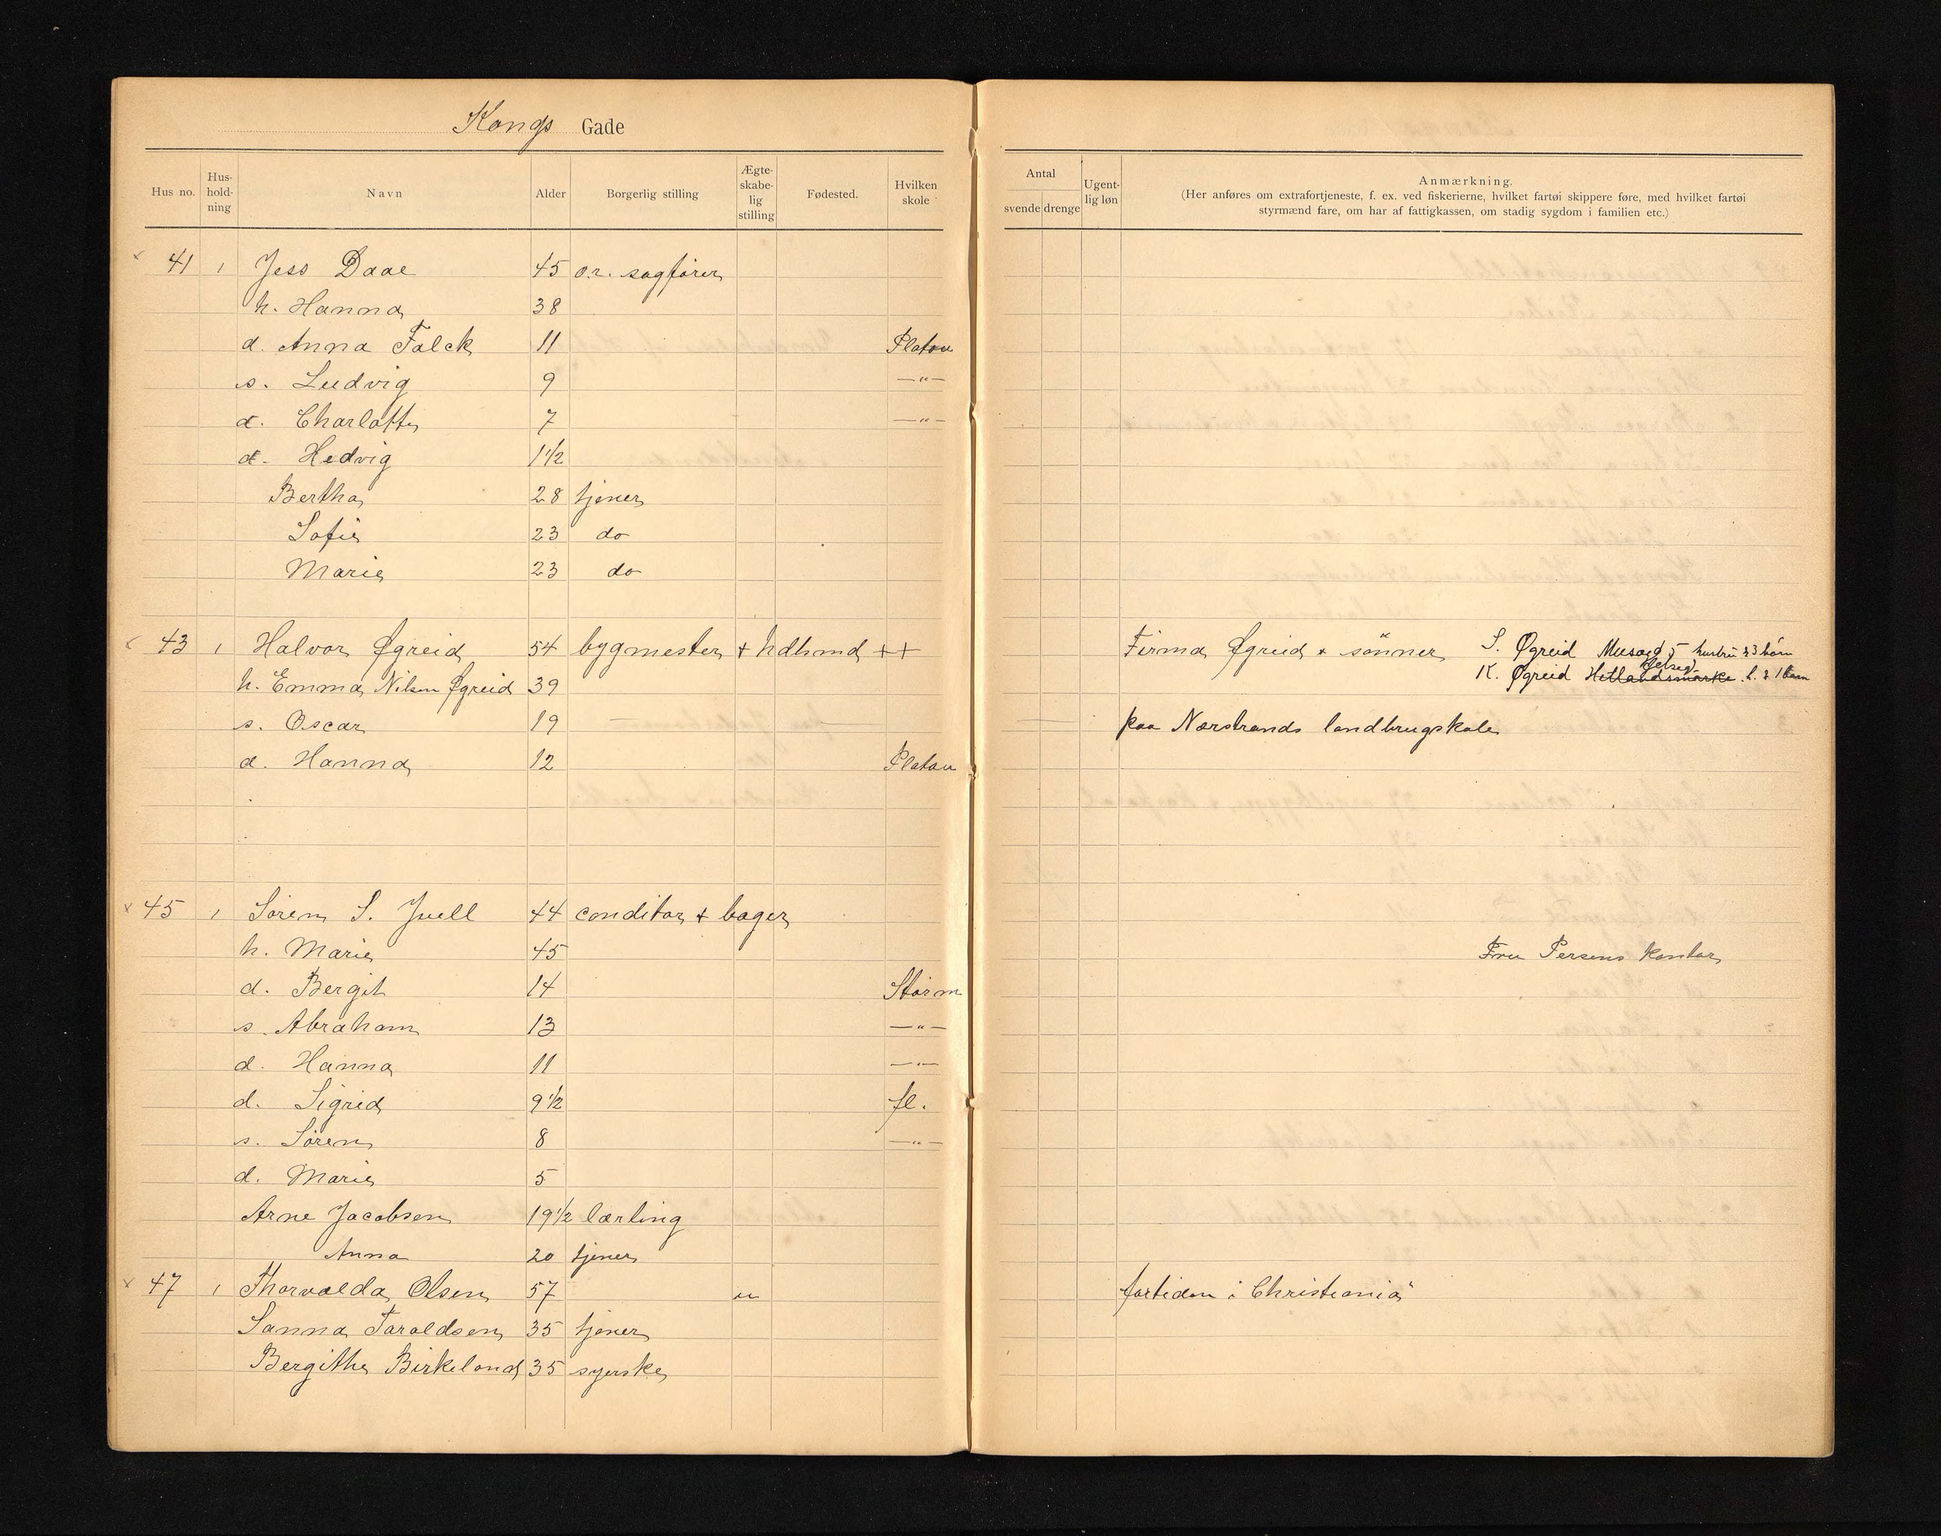 Kongs Gade
Hus no. Hus-hold-ning Navn Alder Borgerlig stilling Ægte-skabe-lig stilling Fødested. Hvilken skole
Antal svende drenge Ugent-lig løn Anmærkning.
(Her anføres om extrafortjeneste, f. ex. ved fiskerierne, hvilket fartøi skippere føre, med hvilket fartøi
styrmænd fare, om har af fattigkassen, om stadig sygdom i familien etc.)
41 1 Jess Daae 45 o.r. sagfører
h. Hanna 38
d. Anna Falck 11 Platou
s. Ludvig 9 —"—
d. Charlotte 7 —"—
d. Hedvig 1 1/2
Bertha 28 tjener
Sofie 23 do
Marie 23 do
43 1 Halvor Øgreid 54 bygmester + hdlsmd ++ Firma Øgreid + sønner S. Øgreid 5 hustru & 3 børn
h. Emma Nilsen Øgreid 39 K. Øgreid Hetlandsmarke h. & 1 barn
s. Oscar 19 — — paa Nærstrands landbrugskole
d. Hanna 12 Platou
45 1 Søren S. Juell 44 conditor + bager
h. Marie 45 Fru Persens kontor
d. Bergit 14 Storm
s. Abraham 13 —"—
d. Hanna 11 —"—
d. Sigrid 9 1/2 fl.
s. Søren 8 —"—
d. Marie 5
Arne Jacobsen 19 1/2 lærling
Anna 20 tjener
47 1 Thorvalda Olsen 57 u fortiden i Christiania
Sanna Taraldsen 35 tjener
Bergithe Birkeland 35 syerske